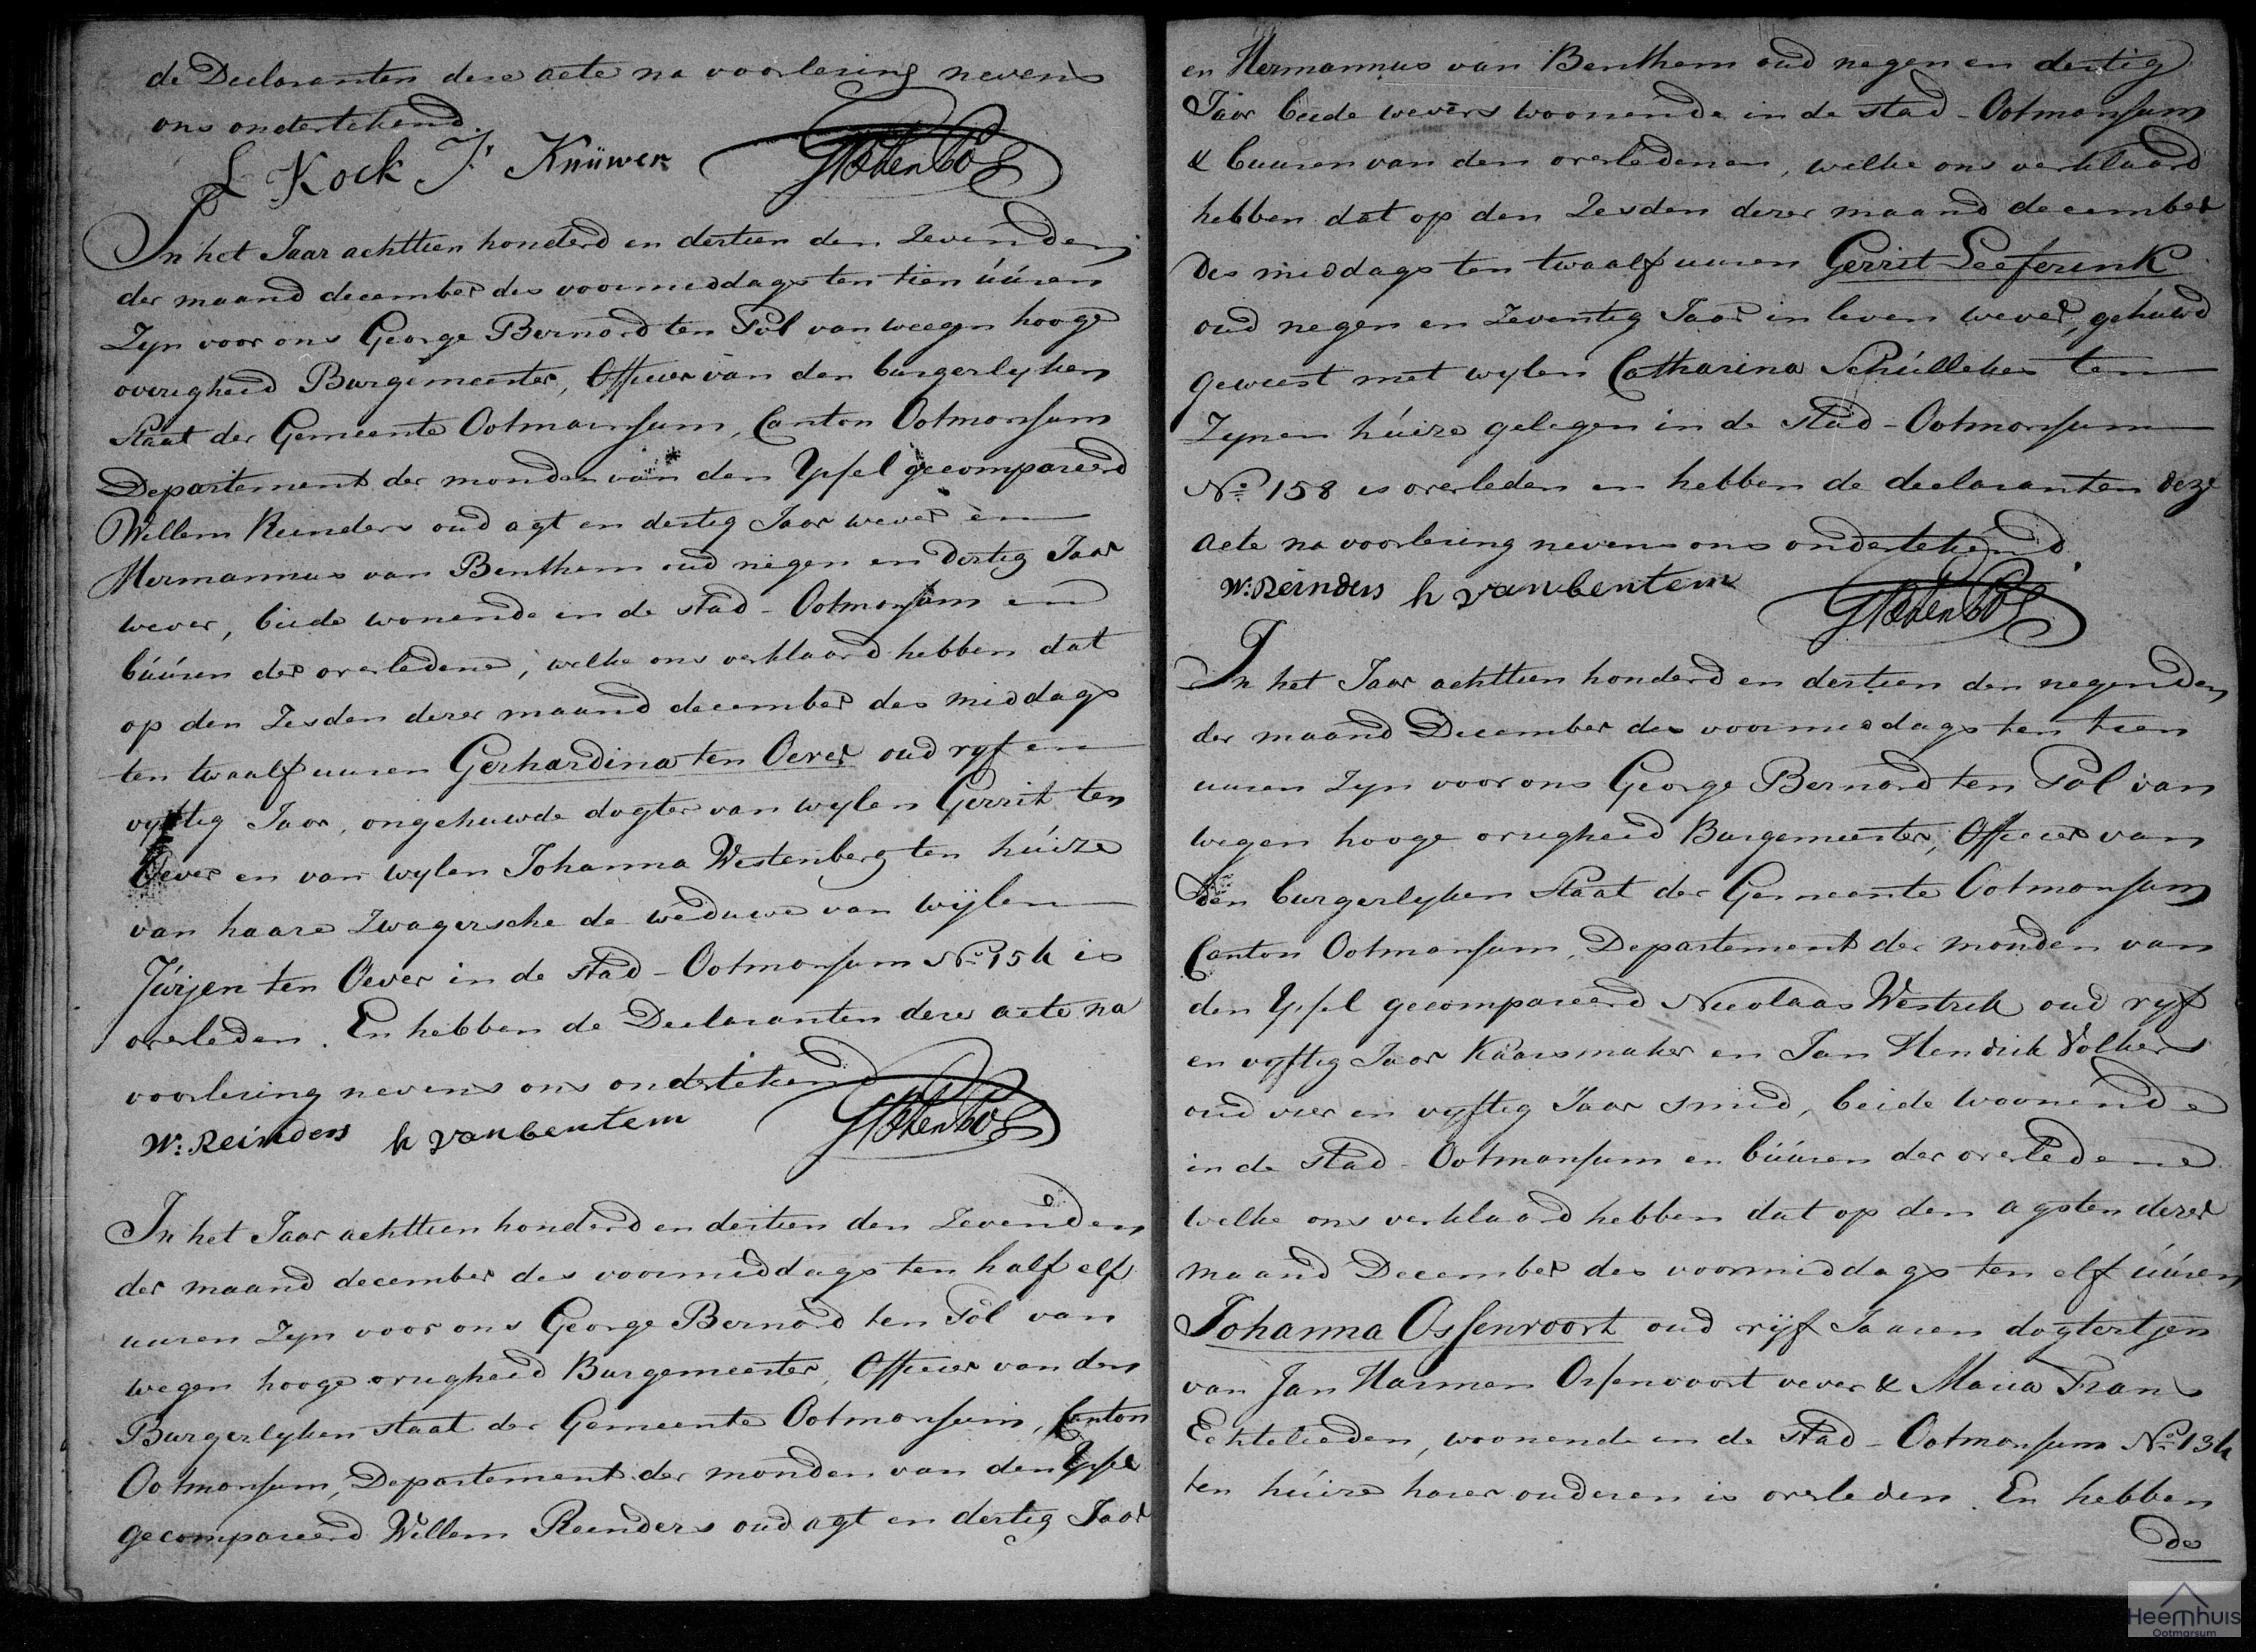 de Declaranten dese acte na voorlesing nevens
ons ondertekend.
L Kock J Knüwer GB ten Pol
In het Jaar achttien honderd en dertien den Zevenden
der maand december des voormiddags ten tien úúren
Zyn voor ons George Bernard ten Pol van weegen hooge
overigheid Burgemeester, Officier van den burgerlyken
Staat der Gemeente Ootmarsum, Canton Ootmarsum
Departement der monden van den Yssel gecompareerd
Willem Reinders oud agt en dertig Jaar wever en
Hermannus van Benthem oud negen en dertig Jaar
wever, beide wonende in de stad - Ootmarsum en
búúren der overledene, welke ons verklaard hebben dat
op den Zesden dezer maand december des middags
ten twaalf uuren Gerhardina ten Oever oud vyf en
vyftig Jaar, ongehuwde dogter van wylen Gerrit ten
Oever en van wylen Johanna Westenberg ten húize
van haare Zwagersche de weduwe van wijlen
Júrjen ten Oever in de stad - Ootmarsum No. 154 is
overleden. En hebben de Declaranten deze acte na
voorlesing nevens ons ondertekend
W: Reinders h van bentem GB ten Pol
In het Jaar achttien honderd en dertien den Zevenden
der maand december des voormiddags ten half elf
uuren Zyn voor ons George Bernard ten Pol van
wegen hooge overigheid Burgemeester, Officier van den
Burgerlyken staat der Gemeente Ootmarsum, Canton
Ootmarsum, Departement der monden van den Yssel
gecompareerd Willem Reinders oud agt en dertig Jaar
en Hermannus van Benthem oud negen en dertig
Jaar beide wevers woonende in de stad - Ootmarsum
& buuren van den overledenen, welke ons verklaard
hebben dat op den Zesden dezer maand december
des middags ten twaalf uuren Gerrit Leeferink
oud negen en Zeventig Jaar in leven wever, gehuwd
geweest met wylen Catharina Schúlleken ten
Zynen húize gelegen in de stad - Ootmarsum
No. 158 is overleden en hebben de declaranten deze
acte na voorlesing nevens ons ondertekend.
W: Reinders h van bentem GB ten Pol
In het Jaar achttien honderd en dertien den negenden
der maand December des voormiddags ten tien
uuren Zyn voor ons George Bernard ten Pol van
wegen hooge overigheid Burgemeester, Officier van
den burgerlyken Staat der Gemeente Ootmarsum
Canton Ootmarsum, Departement der monden van
den Yssel gecompareerd Nicolaas Westrik oud vyf
en vyftig Jaar Kaarsmaker en Jan Hendrik Volkers
oud vier en vyftig Jaar smid, beide woonende
in de stad - Ootmarsum en búúren der overledene
welke ons verklaard hebben dat op den agsten dezer
maand December des voormiddags ten elf úúren
Johanna Ossenvoort oud vijf Jaaren dogtertjen
van Jan Harmen Ossenvoort wever & Maria Frans
Echtelieden, woonende in de stad - Ootmarsum No. 134
ten húize harer ouderen is overleden. En hebben
de
Heemhuis
Ootmarsum